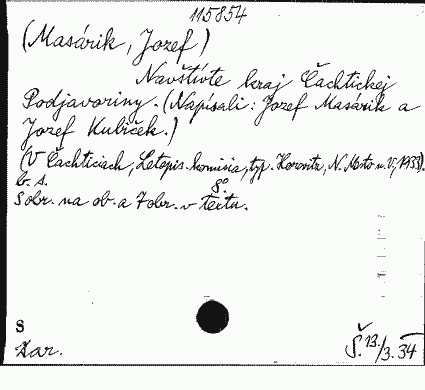 115854
(Masárik, Jozef)
Navštívte kraj Čachtickej
Podjavoriny. (Napísali: Jozef Masárik a
Jozef Kubíček.)
(V Čachticiach, Letopis. komisia, typ. Horovitz, N. Mesto n. V., 1933).
b. s. 8°
S obr. na ob. a 7 obr. v texte.
S
Dar.
Š. 13./3. 34